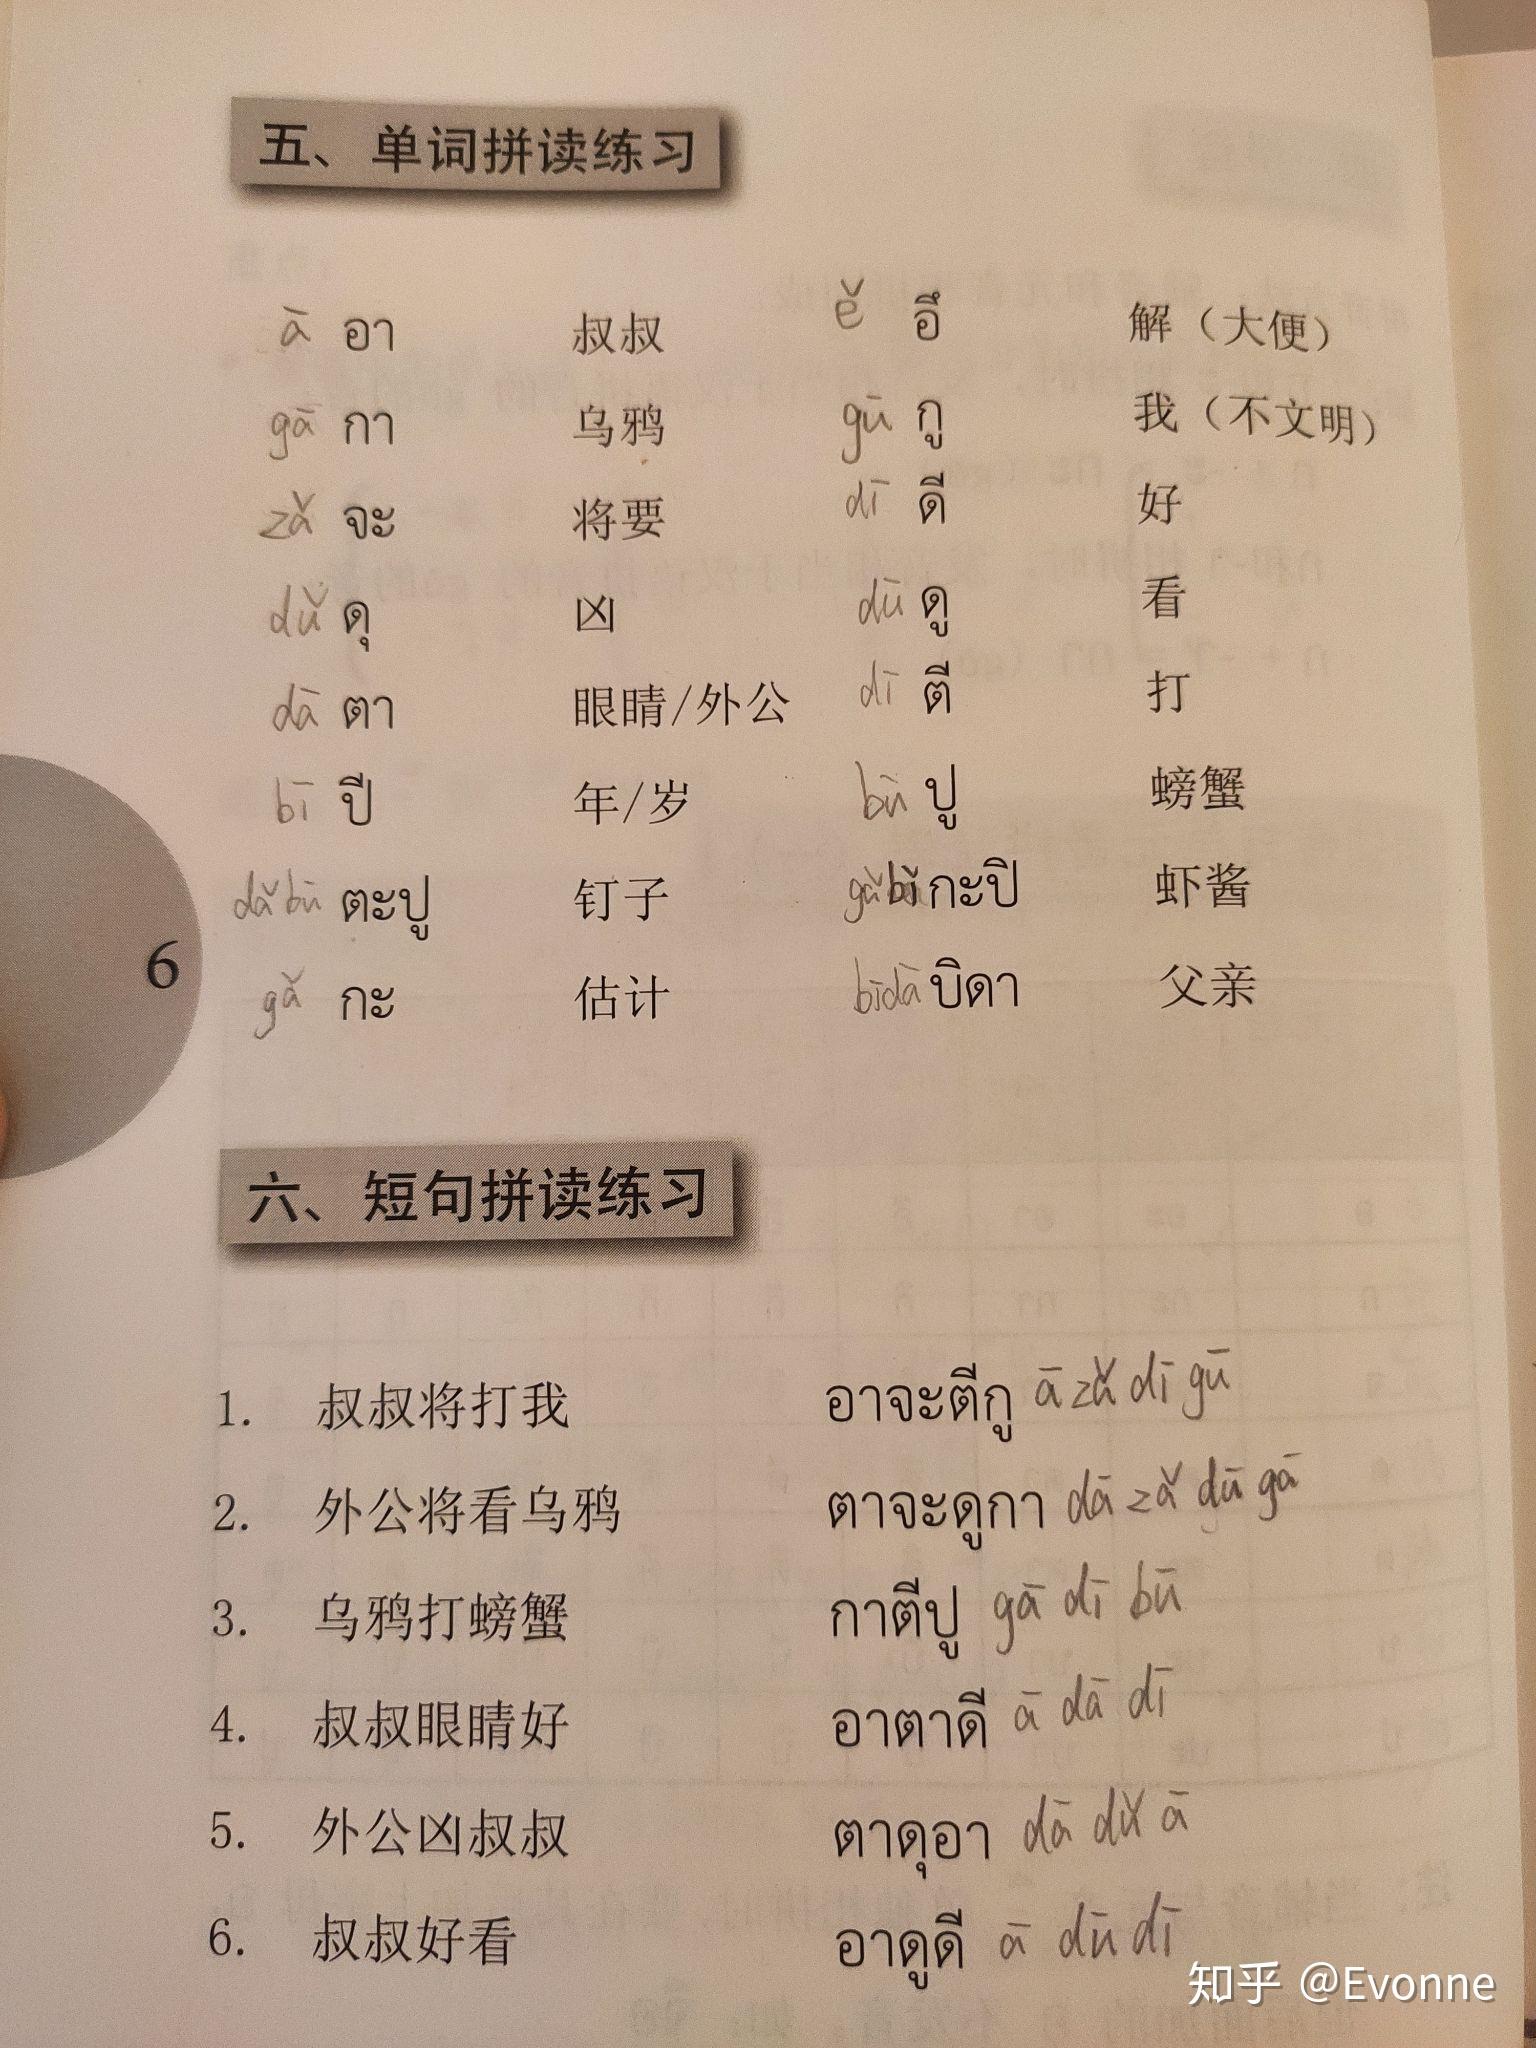 五、单词拼读练习
ā อา 叔叔 ě อึ 解（大便）
gā กา 乌鸦 gū กู 我（不文明）
zǎ จะ 将要 dī ดี 好
dǔ ดุ 凶 dū ดู 看
dā ตา 眼睛/外公 dī ตี 打
bī ปี 年/岁 bū ปู 螃蟹
dǎ bū ตะปู 钉子 gǎ bǐ กะปิ 虾酱
6
gǎ กะ 估计 bīdā บิดา 父亲
六、短句拼读练习
1. 叔叔将打我 อาจะตีกู ā zǎ dī gū
2. 外公将看乌鸦 ตาจะดูกา dā zǎ dū gā
3. 乌鸦打螃蟹 กาตีปู gā dī bū
4. 叔叔眼睛好 อาตาดี ā dā dī
5. 外公凶叔叔 ตาดุอา dā dǔ ā
6. 叔叔好看 อาดูดี ā dū dī
知乎 @Evonne